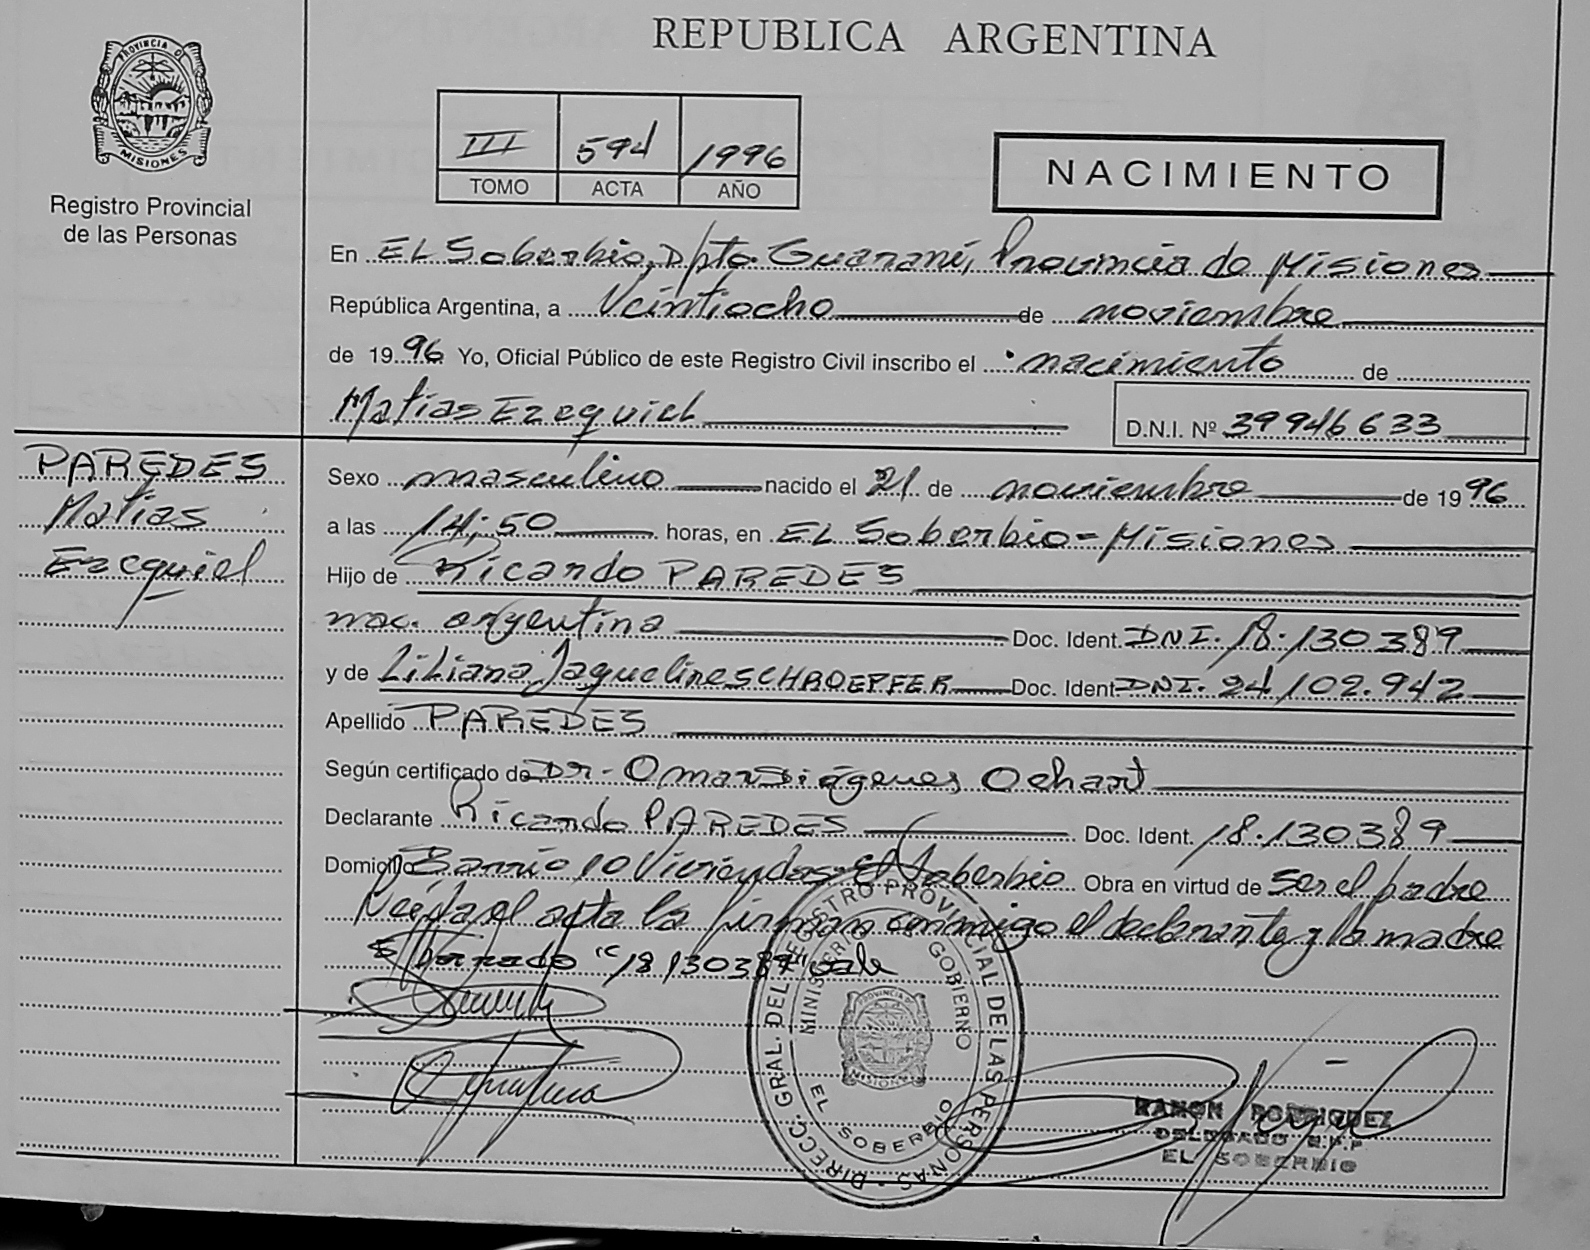 REPUBLICA ARGENTINA
PROVINCIA DE
MISIONES
Registro Provincial
de las Personas
III 594 1996
TOMO ACTA AÑO
NACIMIENTO
En EL Soberbio, Dpto. Guaraní, Provincia de Misiones
República Argentina, a Veintiocho de noviembre
de 1996 Yo, Oficial Público de este Registro Civil inscribo el nacimiento de
Matías Ezequiel
D.N.I. Nº 39946633
PAREDES
Matías
Ezequiel
Sexo masculino nacido el 21 de noviembre de 1996
a las 14:50 horas, en EL Soberbio-Misiones
Hijo de Ricardo PAREDES
nac. argentina Doc. Ident. DNI. 18.130.389
y de Liliana Jaqueline SCHROEPFER Doc. Ident. DNI. 24.102.942
Apellido PAREDES
Según certificado de Dr. Omar Diógenes Ochart
Declarante Ricardo PAREDES Doc. Ident. 18.130389
Domicilio Barrio 10 Viviendas El Soberbio Obra en virtud de ser el padre
Leída el acta la firman conmigo el declarante y la madre
Borrado "18130387" vale
DIRECC. GRAL. DEL REGISTRO PROVINCIAL DE LAS PERSONAS
MINISTERIO GOBIERNO
PROVINCIA DE
MISIONES
EL SOBERBIO
RAMON RODRIGUEZ
DELEGADO R.P.P
EL SOBERBIO